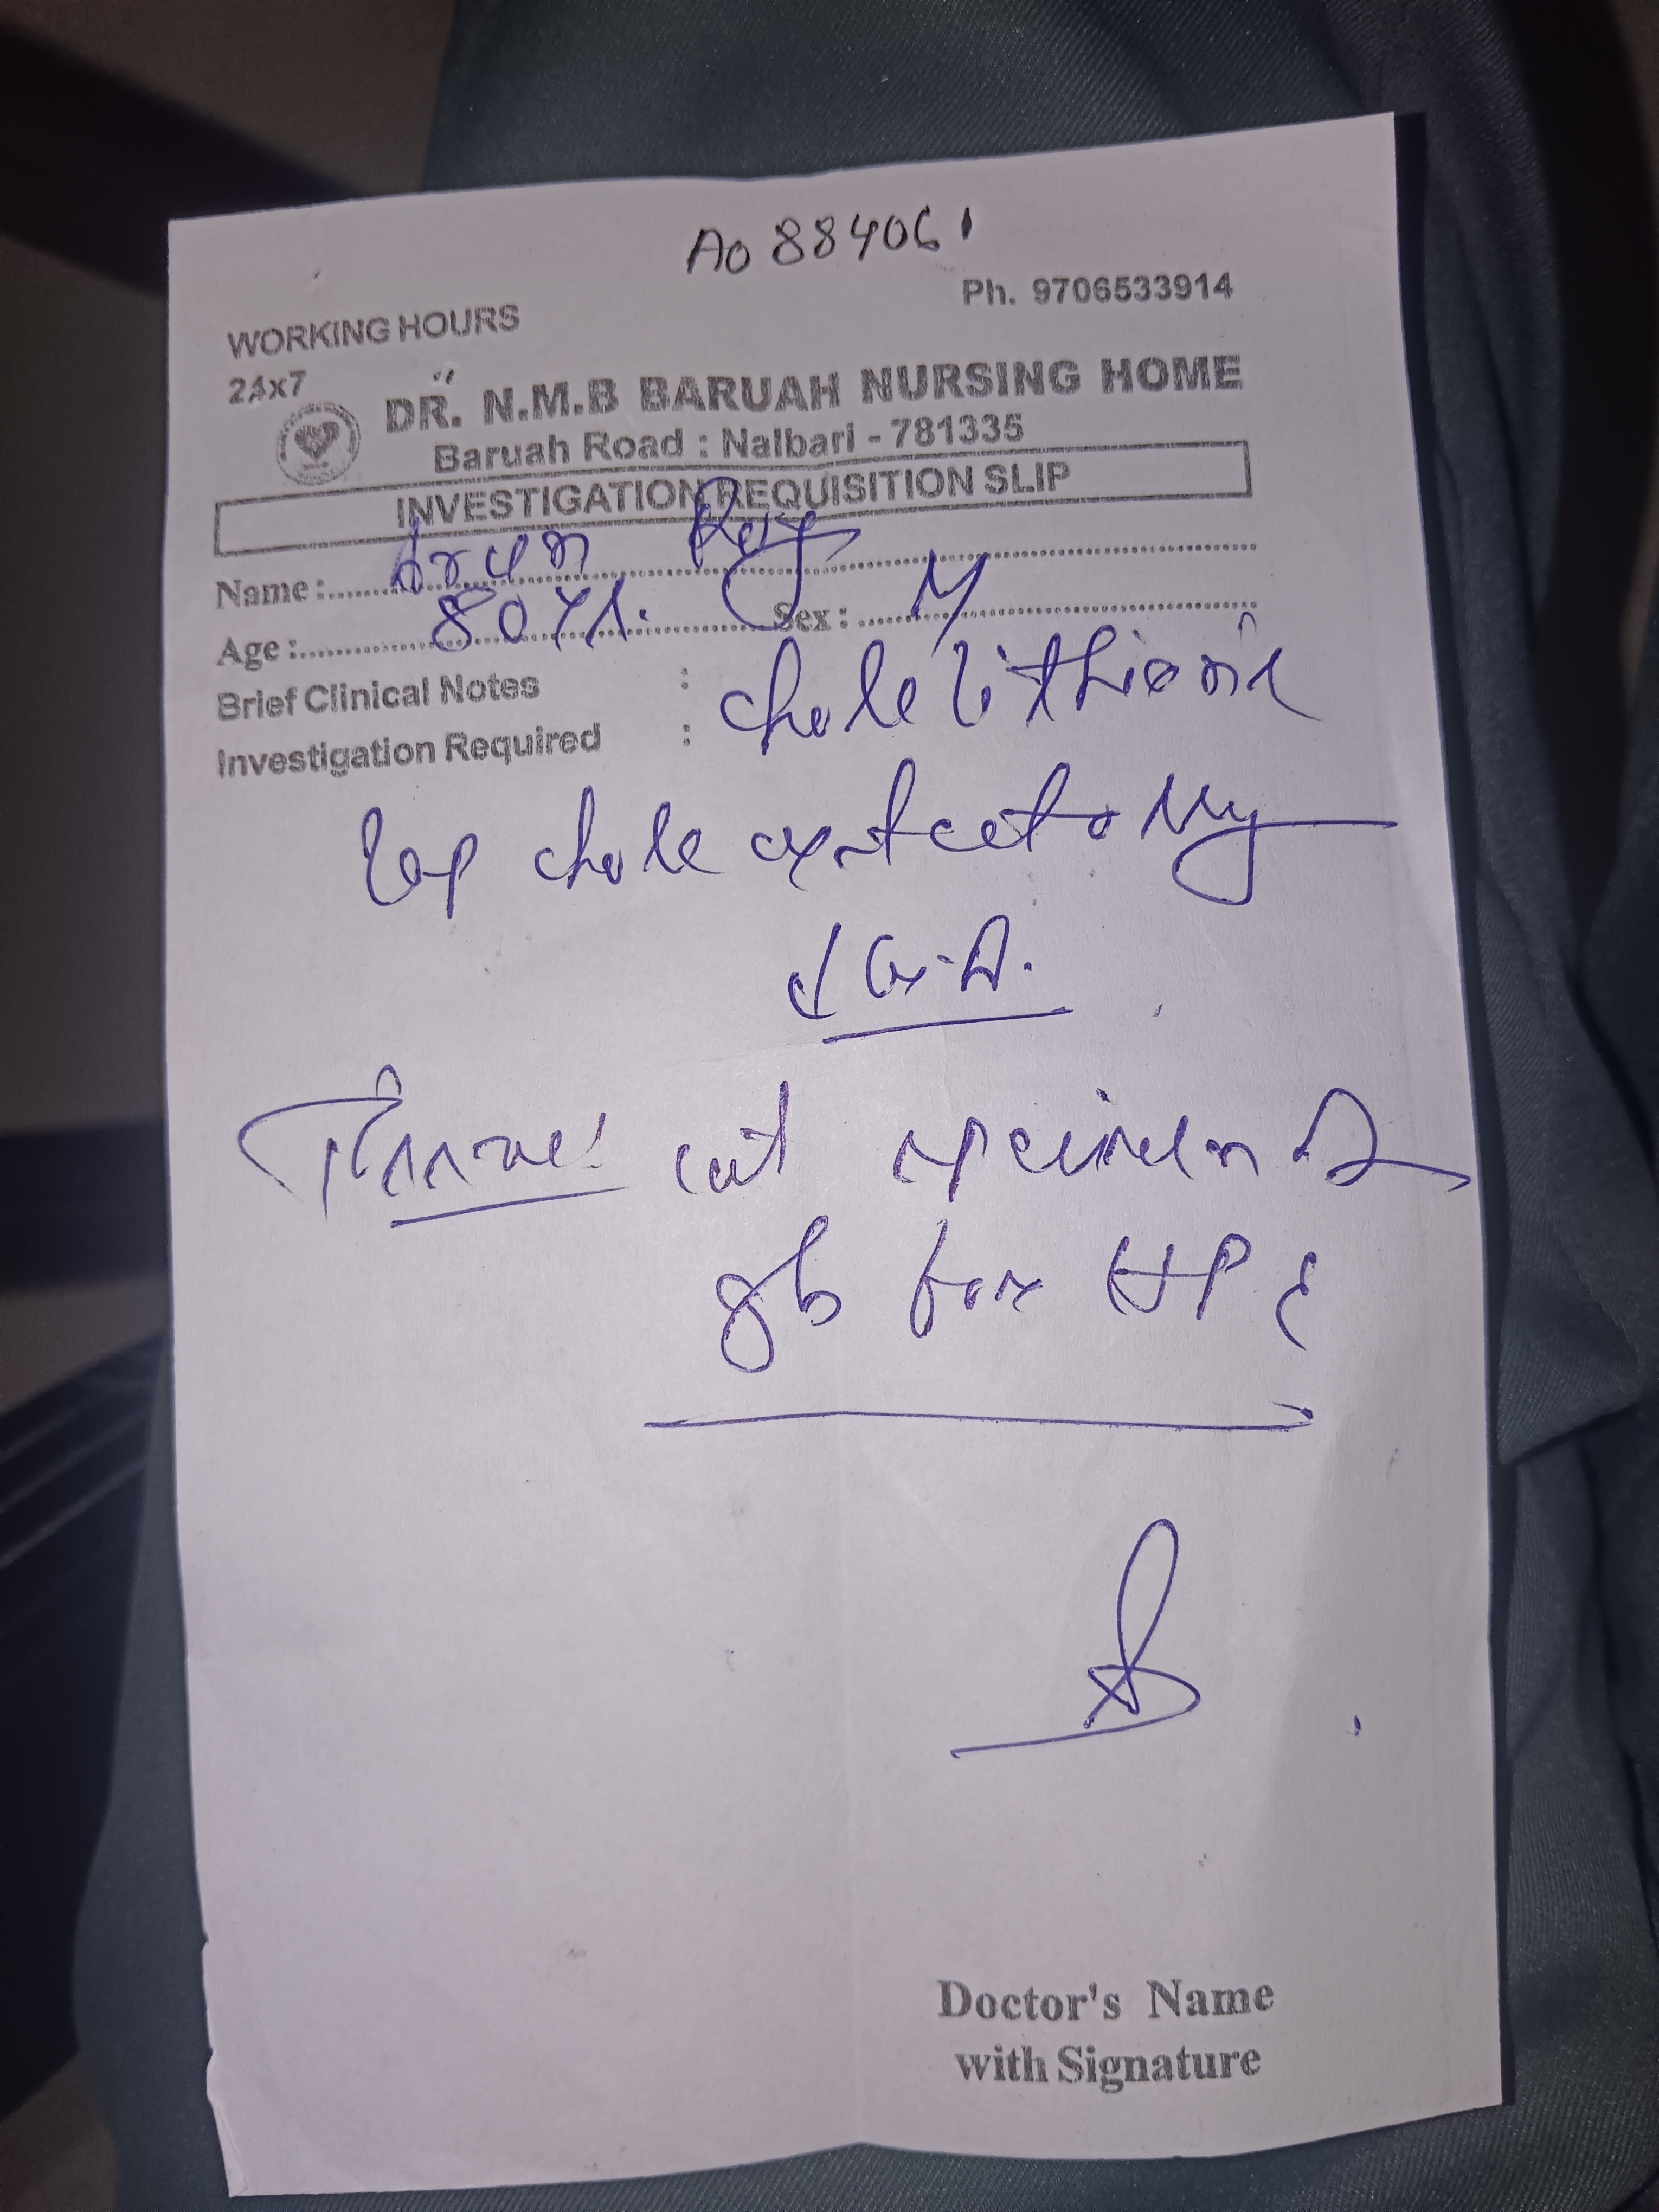 A0884061
Ph. 9706533914
WORKING HOURS
24x7
DR. N.M.B BARUAH NURSING HOME
Baruah Road : Nalbari - 781335
INVESTIGATION REQUISITION SLIP
Name : Arun Roy
Age : 80 Yrs. Sex : M
Brief Clinical Notes :
Investigation Required : Cholelithiasis
Lap cholecystectomy
G.A.
cut specimen of
gb for HPE
Doctor's Name
with Signature